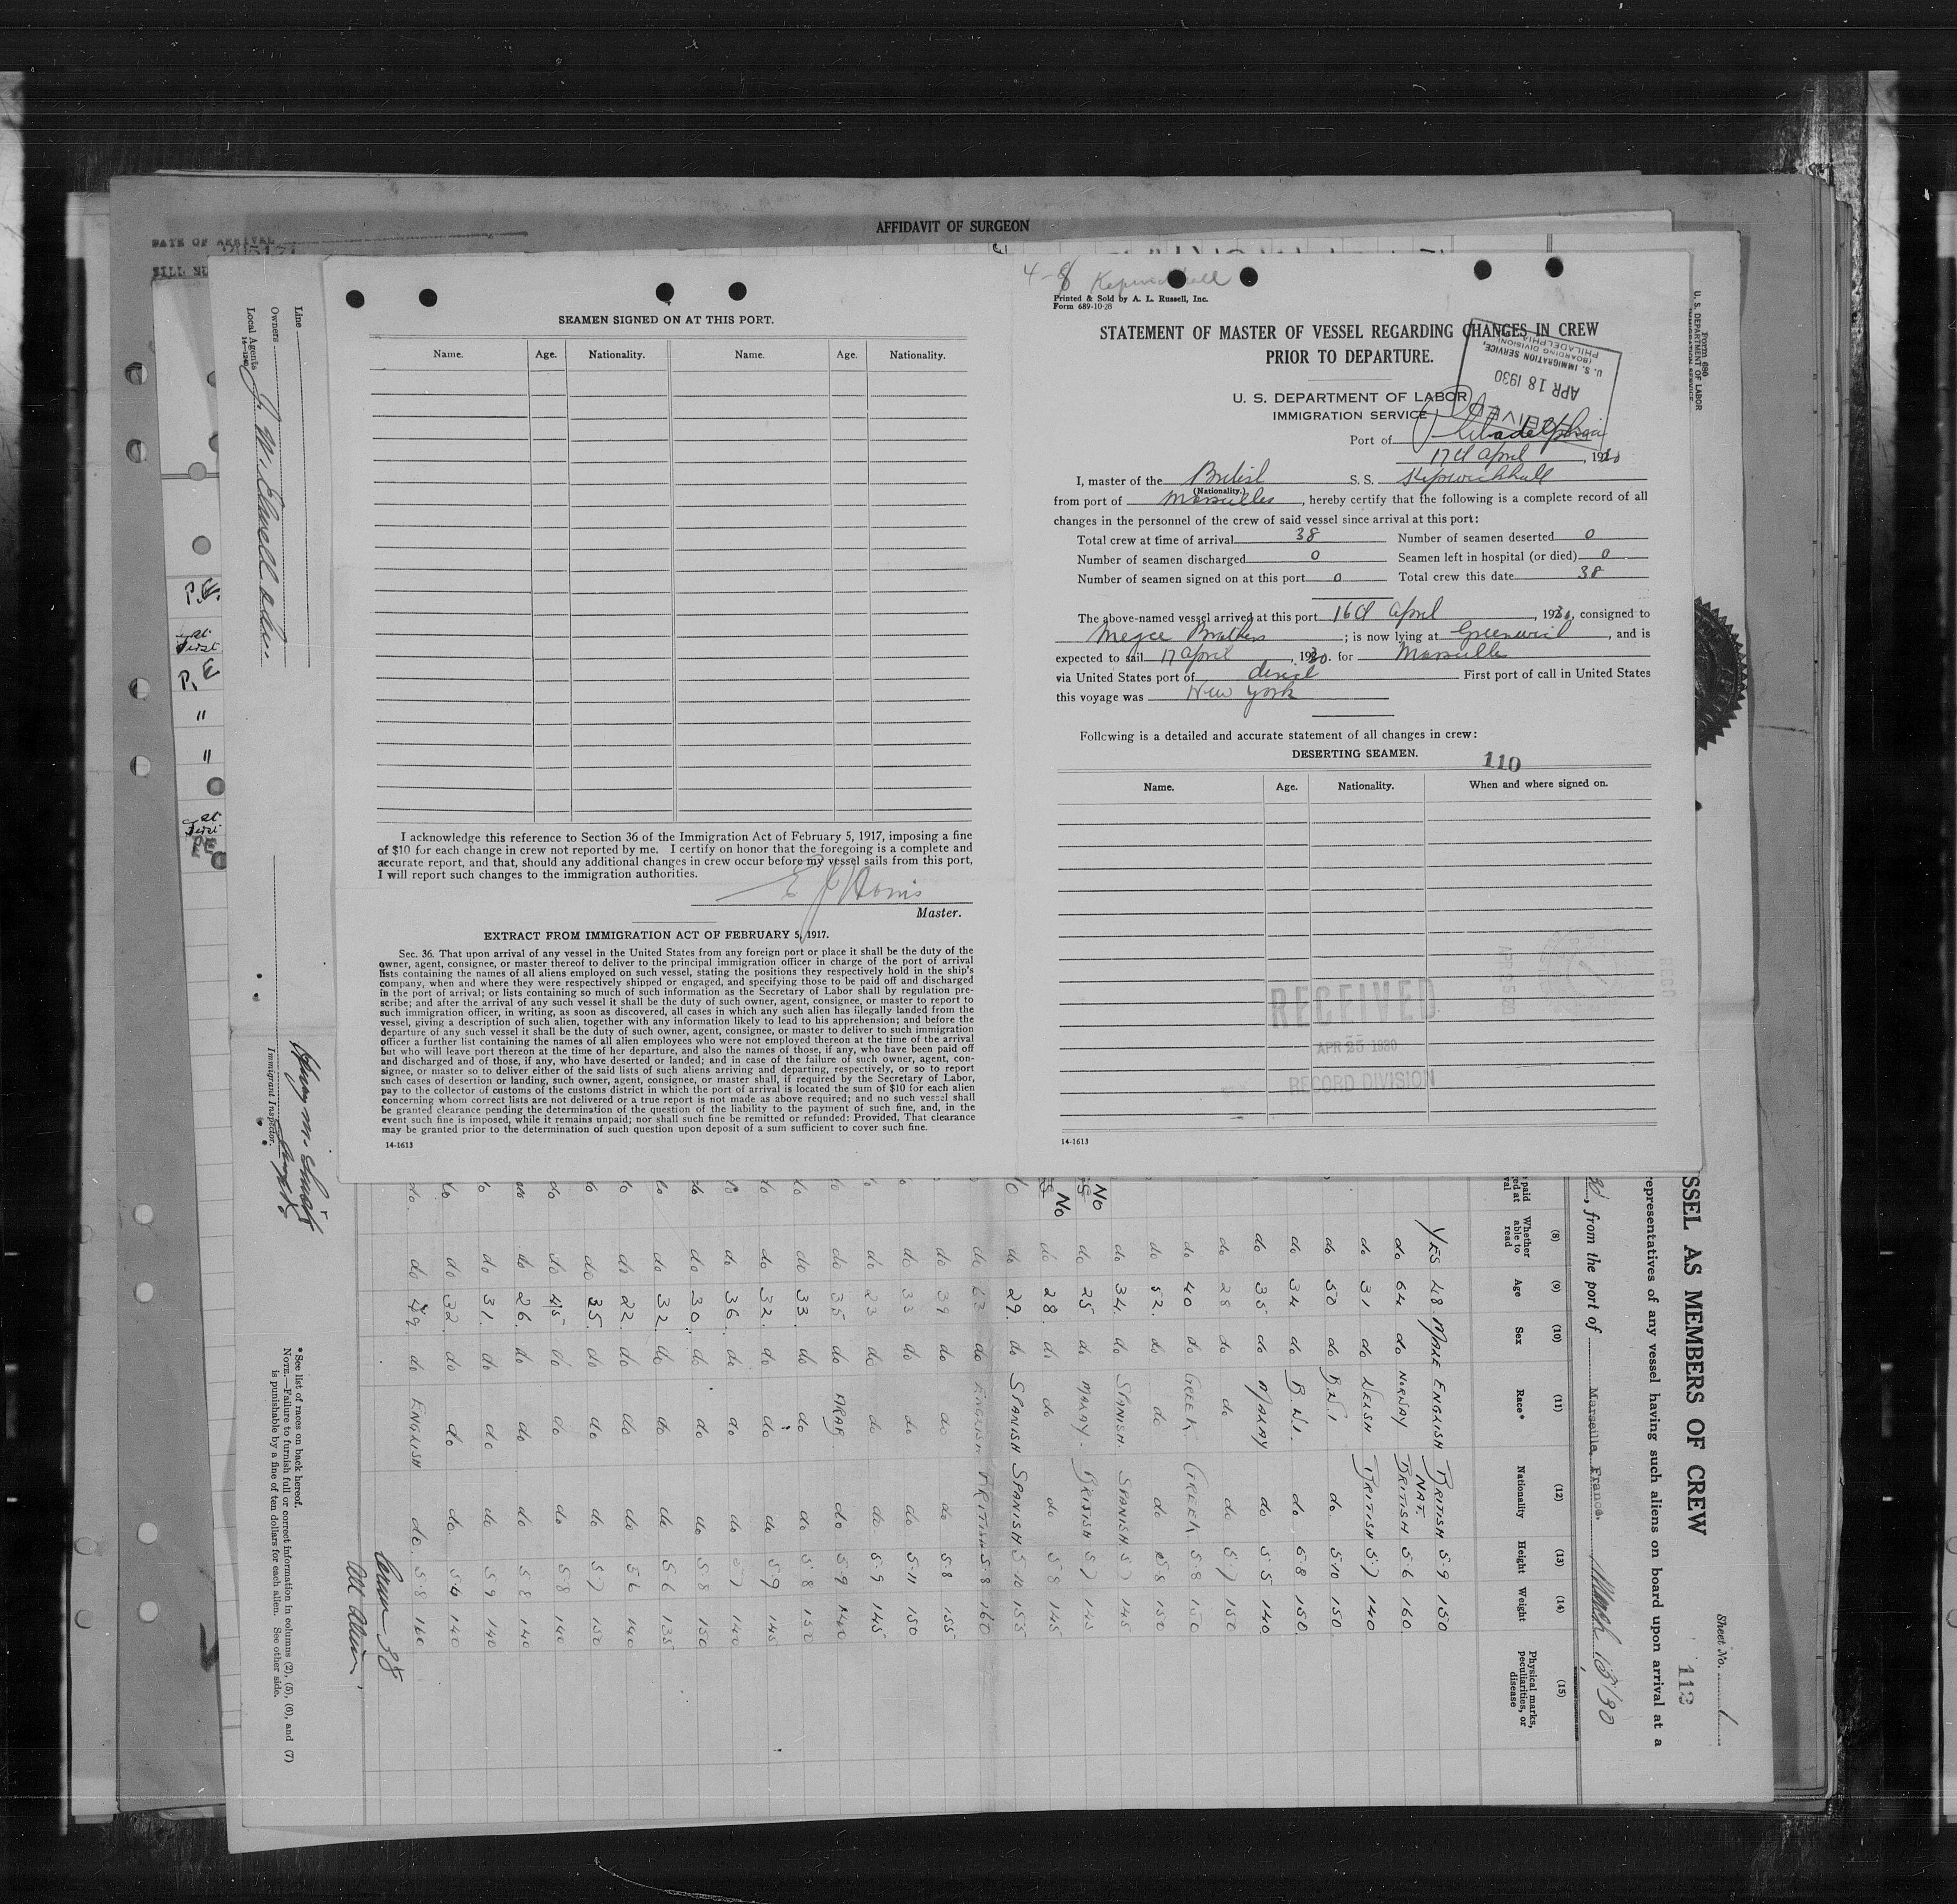 AFFIDAVIT OF SURGEON
DATE OF ARRIVAL
Line
Owners
Local Agents
14-1240
P.E.
at
First
P.E
"
"
at
First
PE
Immigrant Inspector.
SEAMEN SIGNED ON AT THIS PORT.
Name. Age. Nationality. Name. Age. Nationality.
I acknowledge this reference to Section 36 of the Immigration Act of February 5, 1917, imposing a fine
of $10 for each change in crew not reported by me. I certify on honor that the foregoing is a complete and
accurate report, and that, should any additional changes in crew occur before my vessel sails from this port,
I will report such changes to the immigration authorities.
Master.
EXTRACT FROM IMMIGRATION ACT OF FEBRUARY 5, 1917.
Sec. 36. That upon arrival of any vessel in the United States from any foreign port or place it shall be the duty of the
owner, agent, consignee, or master thereof to deliver to the principal immigration officer in charge of the port of arrival
lists containing the names of all aliens employed on such vessel, stating the positions they respectively hold in the ship's
company, when and where they were respectively shipped or engaged, and specifying those to be paid off and discharged
in the port of arrival; or lists containing so much of such information as the Secretary of Labor shall by regulation pre-
scribe; and after the arrival of any such vessel it shall be the duty of such owner, agent, consignee, or master to report to
such immigration officer, in writing, as soon as discovered, all cases in which any such alien has illegally landed from the
vessel, giving a description of such alien, together with any information likely to lead to his apprehension; and before the
departure of any such vessel it shall be the duty of such owner, agent, consignee, or master to deliver to such immigration
officer a further list containing the names of all alien employees who were not employed thereon at the time of the arrival
but who will leave port thereon at the time of her departure, and also the names of those, if any, who have been paid off
and discharged and of those, if any, who have deserted or landed; and in case of the failure of such owner, agent, con-
signee, or master so to deliver either of the said lists of such aliens arriving and departing, respectively, or so to report
such cases of desertion or landing, such owner, agent, consignee, or master shall, if required by the Secretary of Labor,
pay to the collector of customs of the customs district in which the port of arrival is located the sum of $10 for each alien
concerning whom correct lists are not delivered or a true report is not made as above required; and no such vessel shall
be granted clearance pending the determination of the question of the liability to the payment of such fine, and, in the
event such fine is imposed, while it remains unpaid; nor shall such fine be remitted or refunded: Provided, That clearance
may be granted prior to the determination of such question upon deposit of a sum sufficient to cover such fine.
14-1613
Printed & Sold by A. L. Russell, Inc.
Form 689-10-28
STATEMENT OF MASTER OF VESSEL REGARDING CHANGES IN CREW
PRIOR TO DEPARTURE.
U. S. IMMIGRATION SERVICE,
(BOARDING DIVISION)
PHILADELPHIA
APR 18 1930
U. S. DEPARTMENT OF LABOR
IMMIGRATION SERVICE
Port of Philadelphia
17th April, 1930
I, master of the British S. S. Kepwickhall
(Nationality.)
from port of Marseilles, hereby certify that the following is a complete record of all
changes in the personnel of the crew of said vessel since arrival at this port:
Total crew at time of arrival 38 Number of seamen deserted 0
Number of seamen discharged 0 Seamen left in hospital (or died) 0
Number of seamen signed on at this port 0 Total crew this date 38
The above-named vessel arrived at this port 16th April, 1930, consigned to
Brothers; is now lying at Greenwich, and is
expected to sail 17 April, 1930. for Marseille
via United States port of direct First port of call in United States
this voyage was New York
Following is a detailed and accurate statement of all changes in crew:
DESERTING SEAMEN.
110
Name. Age. Nationality. When and where signed on.
RECEIVED
APR 25 1930
RECORD DIVISION
14-1613
Form 680
U. S. DEPARTMENT OF LABOR
Sheet No. 1
SSEL AS MEMBERS OF CREW
112
epresentatives of any vessel having such aliens on board upon arrival at a
, from the port of Marseille, France. March 13/30
(8) (9) (10) (11) (12) (13) (14) (15)
Whether able to read Age Sex Race* Nationality Height Weight Physical marks, peculiarities, or disease
YES 48 MALE ENGLISH BRITISH 5-9 150
do 64 do NORWAY NAT. BRITISH 5-6 160
do 31 do WELSH BRITISH 5-7 140
do 50 do B.W.I do 5-10 150
do 34 do B.W.I. do 5-8 150
do 35 do MALAY do 5-5 140
do 28 do do do 5-7 150
do 40 do GREEK GREEK 5-8 150
do 52 do do do 5-8 150
do 34 do SPANISH SPANISH 5-7 145
No do 25 do MALAY BRITISH 5-7 145
No do 28 do do do 5-8 145
do 29 do SPANISH SPANISH 5-10 155
do 23 do ENGLISH BRITISH 5-8 160
do 39 do do do 5-8 155
do 33 do do do 5-11 150
do 23 do do do 5-9 145
do 35 do ARAB do 5-9 140
do 33 do do do 5-8 150
do 32 do do do 5-9 145
do 36 do do do 5-7 140
do 30 do do do 5-8 150
do 32 do do do 5-6 135
do 22 do do do 5-6 140
do 35 do do do 5-7 150
do 45 do do do 5-8 140
do 26 do do do 5-8 140
do 31 do do do 5-9 140
do 32 do do do 5-4 140
do 49 do ENGLISH do 5-8 160
Crew 38
All Aliens
* See list of races on back hereof.
NOTE.—Failure to furnish full or correct information in columns (2), (5), (6), and (7)
is punishable by a fine of ten dollars for each alien. See other side.